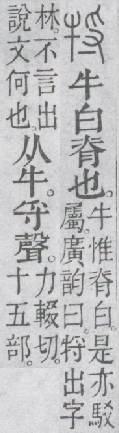 牛白脊也。牛惟脊白。是亦駁
屬。廣韵曰。㸹出字
林。不言出
說文何也。从牛。寽聲。力輟切。
十五部。